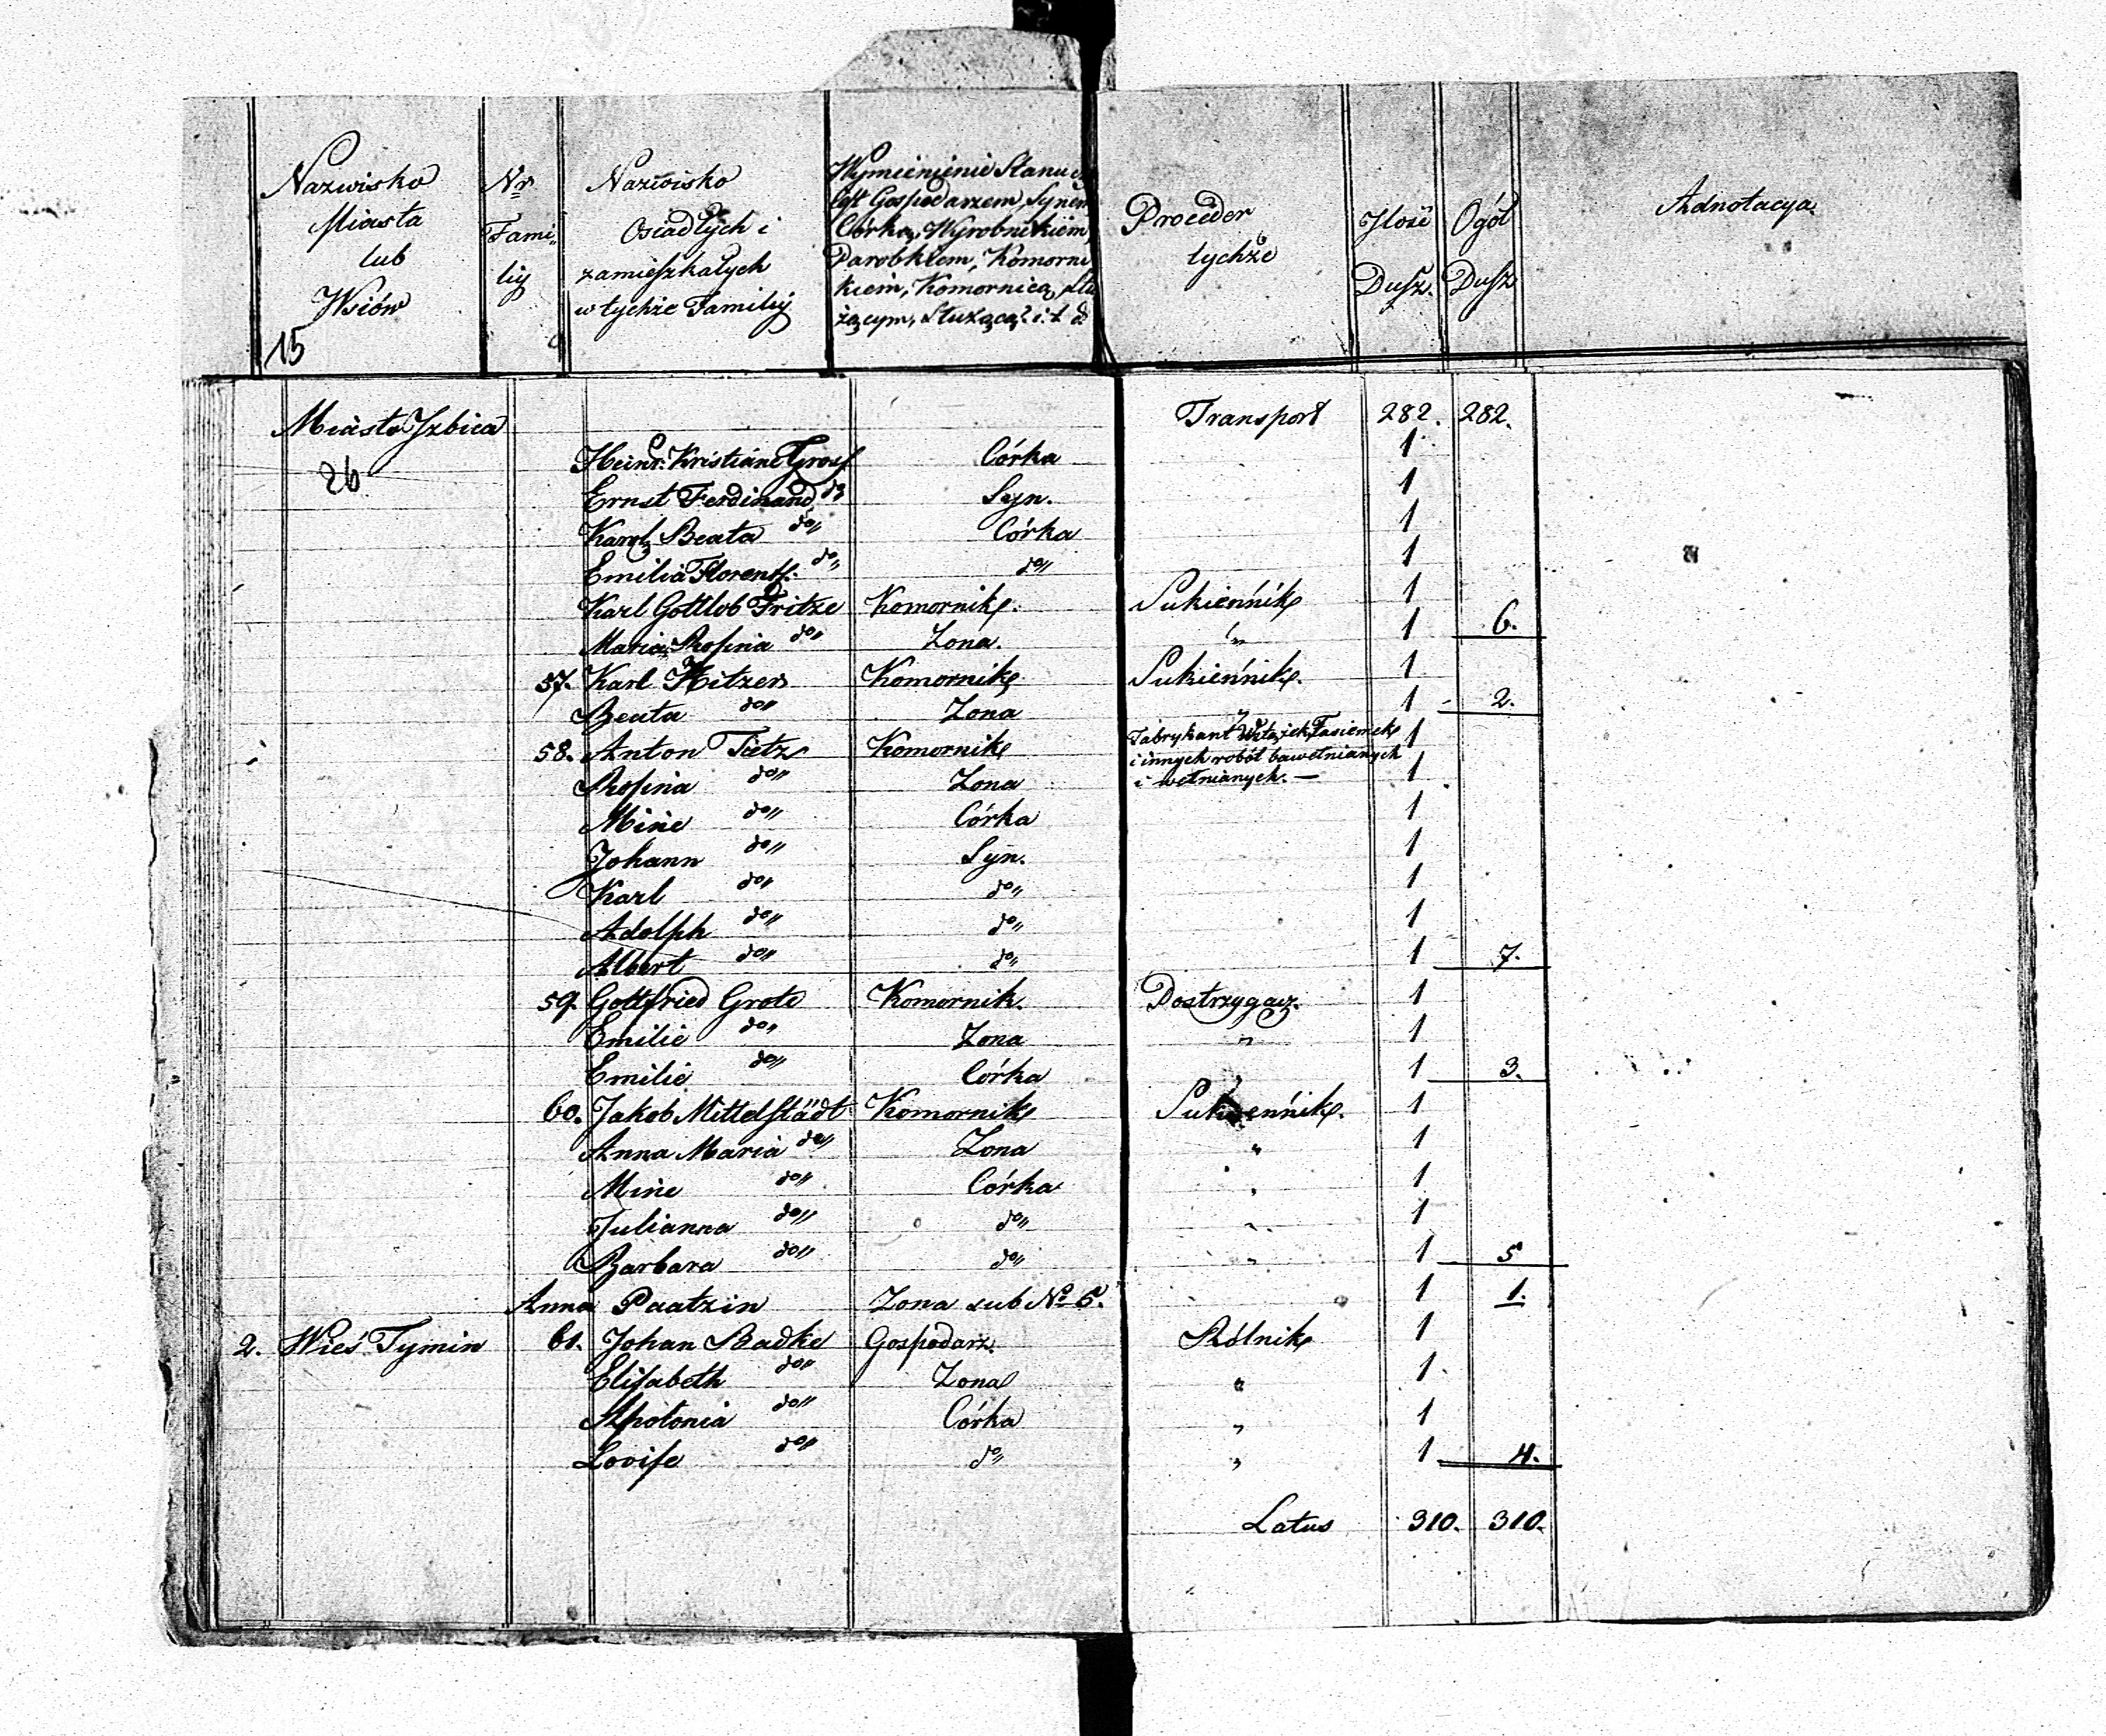 Nazwisko Miasta lub Wsiów
Nr Fami=liy
Nazwisko Osiadłych i zamieszkałych w tychże Familiy
Wymienienie Stanu
Gospodarzem, Synem
Córką, Wyrobnikiem,
Parobkiem, Komorni
kiem, Komornicą, Słu
żącym, Służącą? i. t d
Proceder tychże
Ilość Dusz.
Ogół Dusz
Adnotacya.
15
Miasto Izbica Transport 282. 282.
26
Heinr: Kristiane Gross Córka 1
Ernst Ferdinand do Syn. 1
Karol: Beata do Córka 1
Emilia Florent: do do 1
Karl Gottlob Fritze Komornik. Sukiennik 1
Maria Rosina do Zona. " 1 6.
57. Karl Hitzer Komornik Sukiennik. 1
Beata do Zona " 1 2.
58. Anton Tietz Komornik Fabrykant Wstążek, Tasiemek 1
i innych robót bawełnianych
Rosina do Zona i wełnianych. — 1
Mine do Córka 1
Johann do Syn. 1
Karl do do 1
Adolph do do 1
Albert do do 1 7.
59. Gottfried Grote Komornik. Postrzygacz. 1
Emilie do Zona " 1
Emilie do Córka " 1 3.
60. Jakob Mittelstädt Komornik Sukiennik. 1
Anna Maria do Zona " 1
Mine do Córka " 1
Julianna do do " 1
Barbara do do " 1 5
Anna Paatzin Zona sub No 5. 1 1.
2. Wieś Tymin 61. Johan Radke Gospodarz. Rólnik 1
Elisabeth do Zona " 1
Apolonia do Córka " 1
Lovise do do " 1 4.
Latus 310. 310.